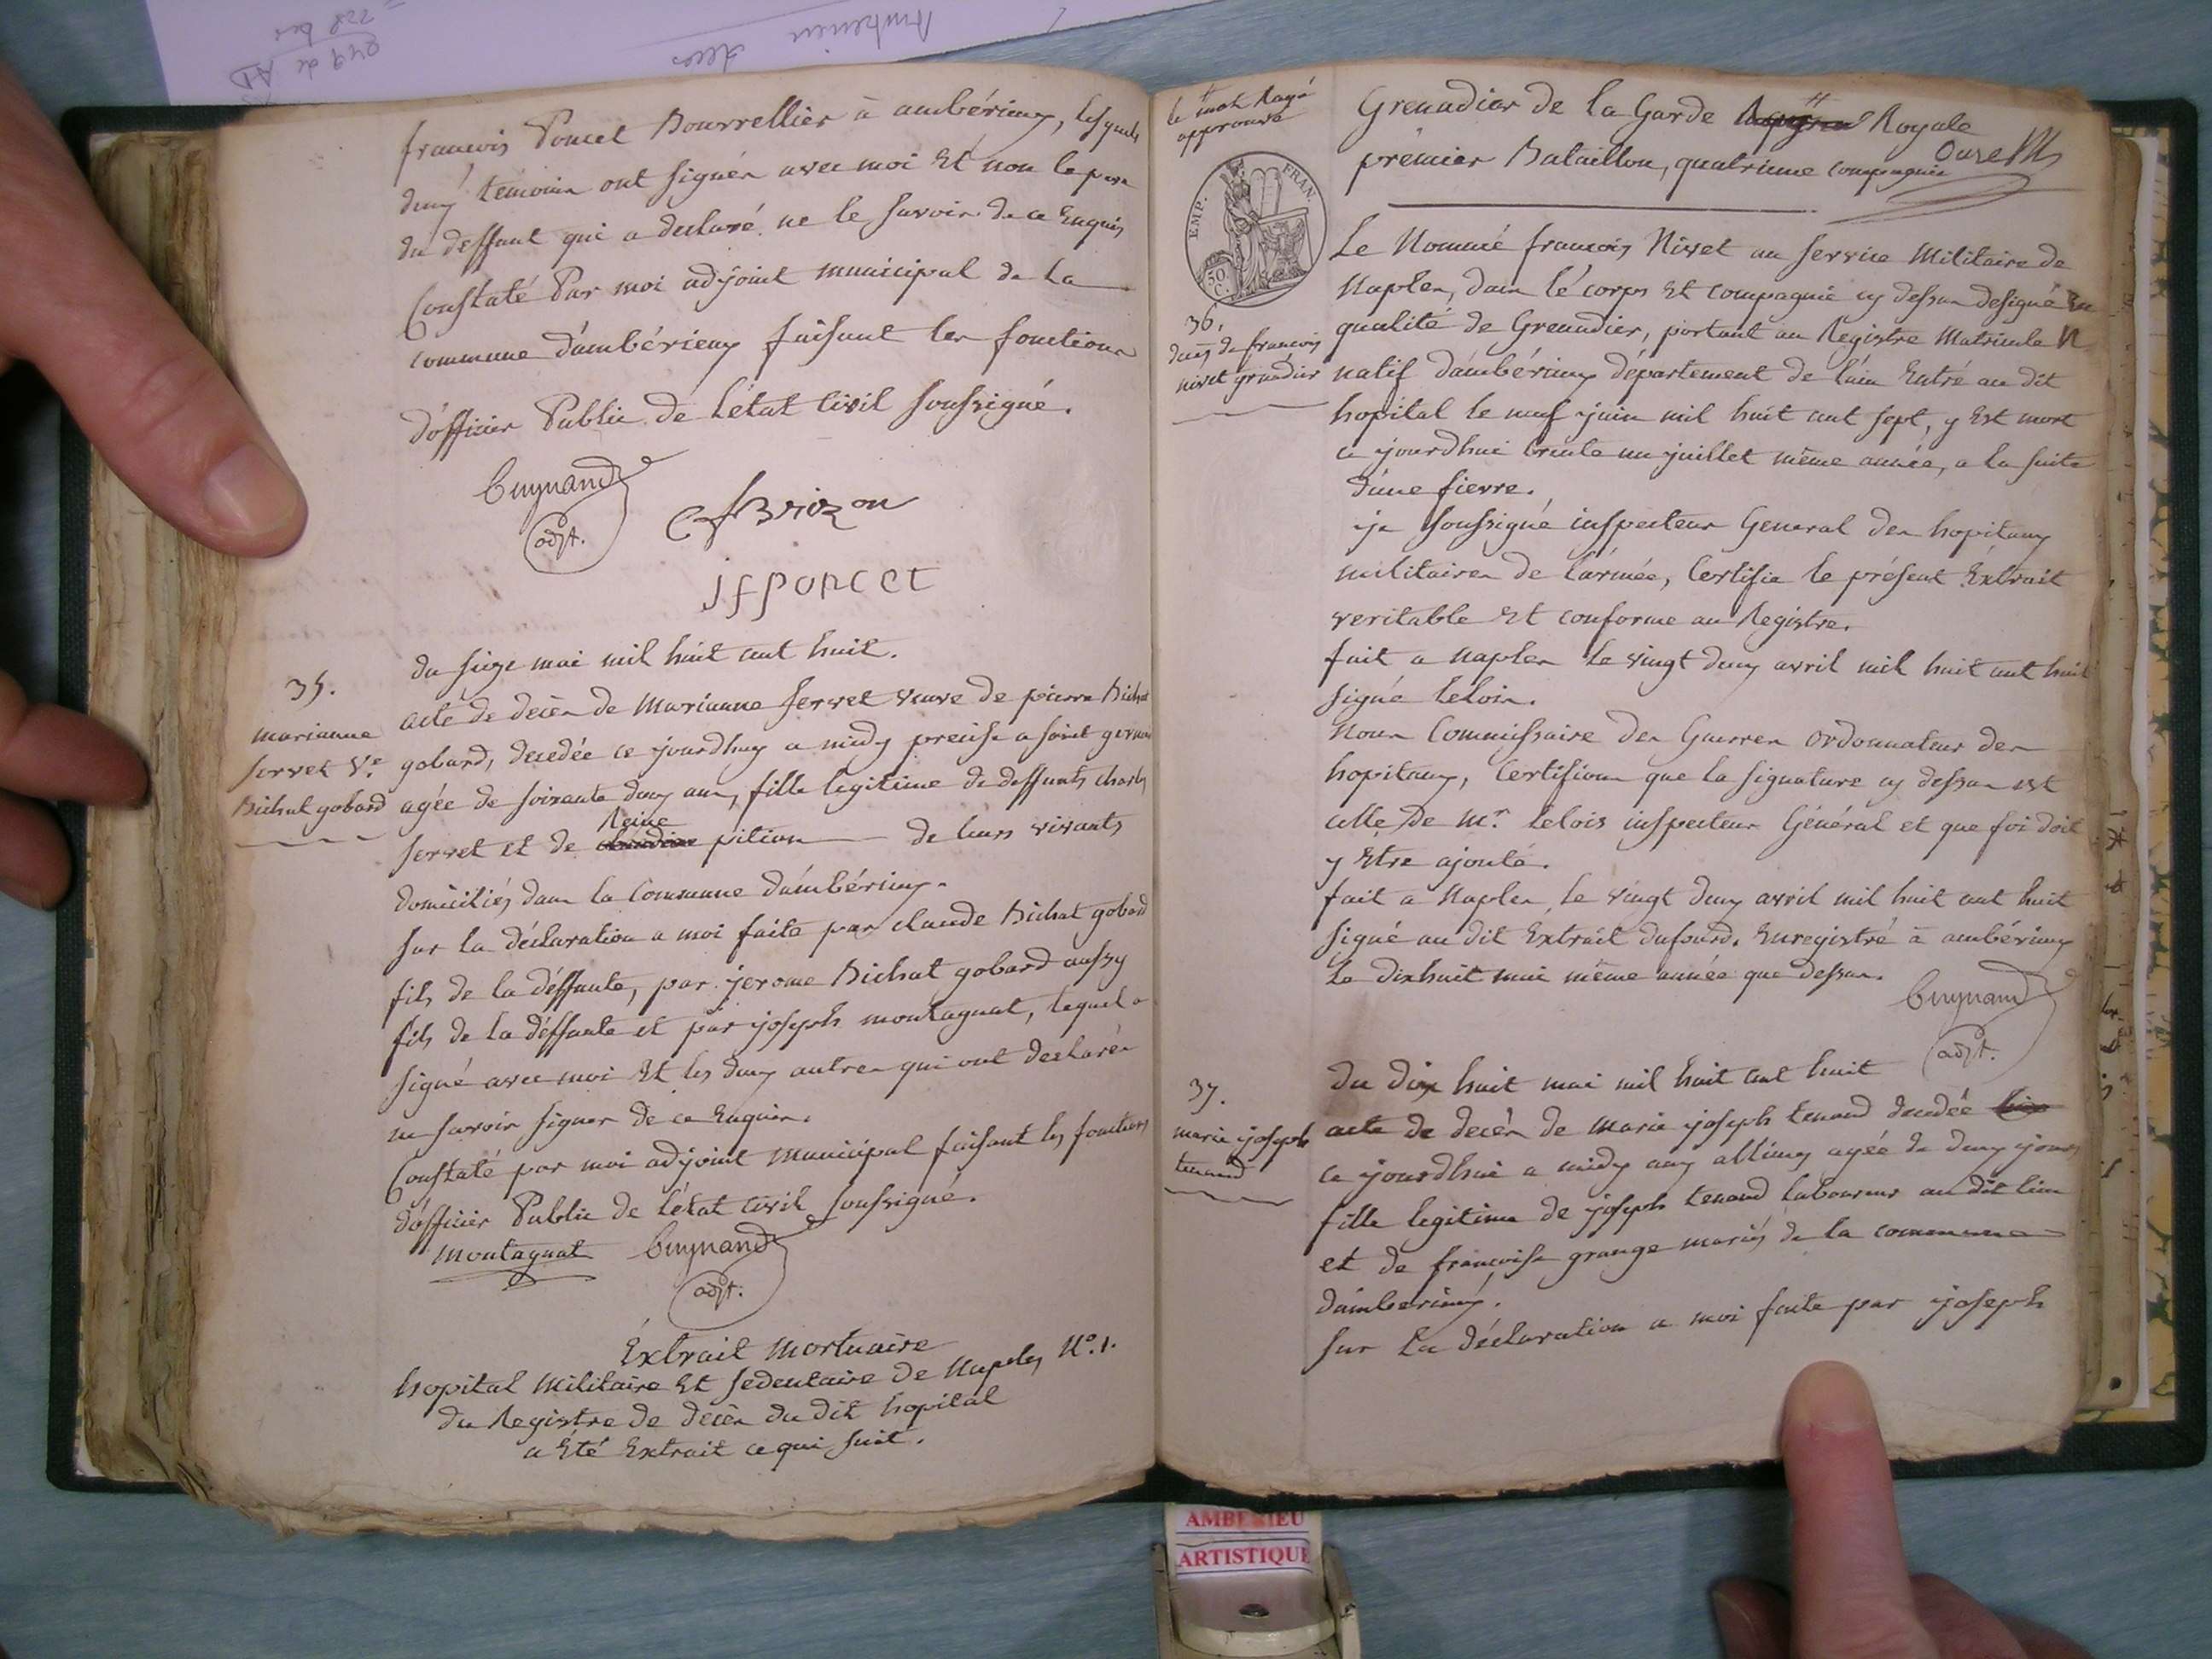 françois Poncet Bourrellier à ambérieux, lesquels
deux temoins ont signés avec moi Et non le pere
du deffunt qui a declaré ne le savoir de ce Enquis
Constaté Par moi adjoint municipal de la
commune d'ambérieux faisant les fonctions
d'officier Public de l'état Civil soussigné.
Guynand
adjt.
Brizon
jfponcet
35.
marianne
servet Ve.
Bichat gobard
du seize mai mil huit cent huit.
acte de decès de Marianne servet veuve de pierre Bichat
gobard, decedée ce jourdhuy a midy precise a saint germain
agée de soixante deux ans, fille legitime de deffunts charles
Reine
servet et de pition de leurs vivants
domiciliés dans la Commune d'ambérieux.
sur la déclaration a moi faite par claude Bichat gobard
fils de la déffunte, par jerome Bichat gobard aussy
fils de la déffunte et par joseph montagnat, lequel a
signé avec moi Et les deux autres qui ont declarés
ne savoir signer de ce Enquis.
Constaté par moi adjoint Municipal faisant les fonctions
d'officier Public de l'état Civil soussigné.
montagnat Guynand
adjt.
Extrait Mortuaire
hopital Militaire Et sedentaire de Naples No. 1.
du Registre de decès du dit hopital
a Eté Extrait ce qui suit.
le mot Rayé
approuvé
Grenadier de la Garde Royale
premier Bataillon, quatrieme compagnie
EMP. FRAN.
50 C.
36.
decès de françois
nivet grenadier
Le Nommé françois Nivet au service Militaire de
Naples, dans le corps Et compagnie cy dessus designé En
qualité de Grenadier, portant au Registre Matricule N
natif d'ambérieux département de l'ain Entré au dit
hopital le neuf juin mil huit cent sept, y Est mort
ce jourdhui trente un juillet même année, a la suite
d'une fievre.
je soussigné inspecteur General des hopitaux
militaires de l'armée, Certifie le présent Extrait
veritable Et conforme au Registre.
fait a Naples le vingt deux avril mil huit cent huit
signé lelois.
Nous Commissaire des Guerres ordonnateur des
hopitaux, Certifions que la signature cy dessus est
celle de Mr. lelois inspecteur Général et que foi doit
y Etre ajouté.
fait a Naples, le vingt deux avril mil huit cent huit
signé au dit Extrait dufourd. Enregistré à ambérieux
Le dixhuit mai même année que dessus.
Guynand
adjt.
37.
marie joseph
tenand
du dix huit mai mil huit cent huit
acte de decès de Marie joseph tenand decedée
ce jourdhui a midy aux allimes agée de deux jours
fille legitime de joseph tenand laboureur au dit lieu
et de françoise grange mariés de la commune
d'ambérieux.
sur la déclaration a moi faite par joseph
AMBERIEU
ARTISTIQUE